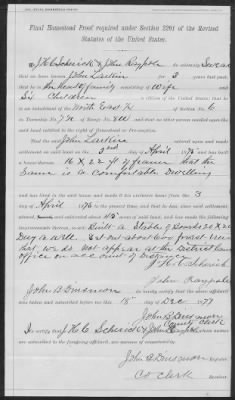 Final Homestead Proof required under Section 2291 of the Revised
Statutes of the United States.
We J H C Schrick & John Raypole do solemnly Swear
that we have known John Larkin for 3 years last past,
that he is An head of family consisting of Wife and
Six Children a citizen of the United States; that he
is an inhabitant of the North East ¼ of section No. 6
in Township No. 7 N of Range No.
the said land entitled to the right of Homestead or Pre-emption.
That the said John Larkin entered upon and made
settlement on said land on the 3rd day of April 1876 and has built
a house thereon 16 x 22 ft of frame that the
Same is a comfortable dwelling
and has lived in the said house and made it his exclusive home from the 3
day of April 1876 to the present time, and that he has, since said settlement,
cultivated about acres of said land, and has made the following
improvements thereon, to wit: Built a Stable of Boards 20 x 20
Dug a well Set out about trees
that we do not appear at the district land
office on account of distance
J H C Schrick
John Raypole
I, John B Dinsmoor do hereby certify that the above affidavit
was taken and subscribed before me this 15 day of Dec 1879
John B Dinsmoor
County Clerk
We certify that J H C Schrick & John Raypole whose names
are subscribed to the foregoing affidavit, are persons of respectability.
John B Dinsmoor
Co Clerk
Receiver.